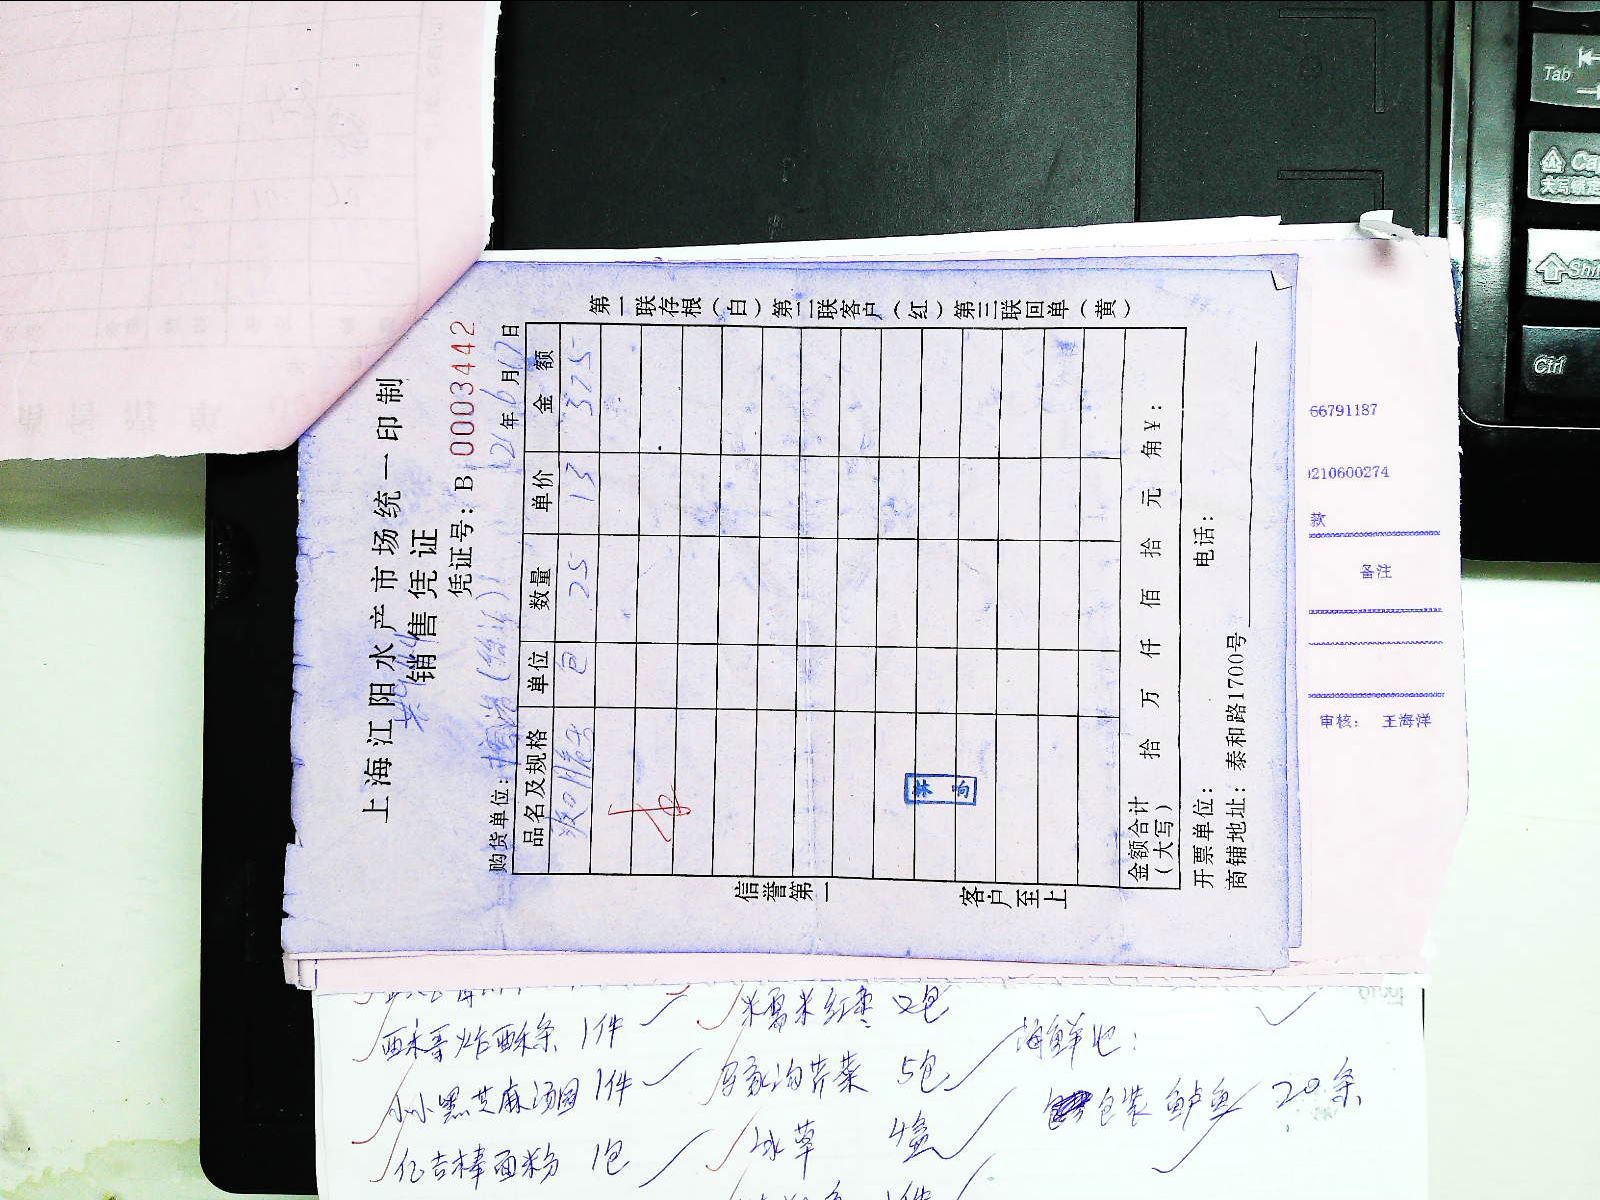 上海江阳水产市场统一印制
销售凭证
凭证号：B 0003442
购货单位：
21年6月12日
品名及规格 单位 数量 单价 金额
包 25 13 325
金额合计（大写） 拾 万 仟 佰 拾 元 角 ¥：
开票单位： 电话：
商铺地址：泰和路1700号
第一联存根（白）第二联客户（红）第三联回单（黄）
信誉第一
客户至上
66791187
210600274
款
备注
审核： 王海洋
1件
小小黑芝麻汤圆 1件
亿吉棒面粉 1包
米雪米红枣 2包
马家沟芹菜 5包
冰草 4盒
1件
海鲜池：
包装鲈鱼 20条
Tab
Ca
大写锁定
Shi
Ctrl